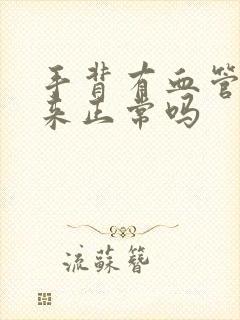 手背有血管
来正常吗
流蘇簪